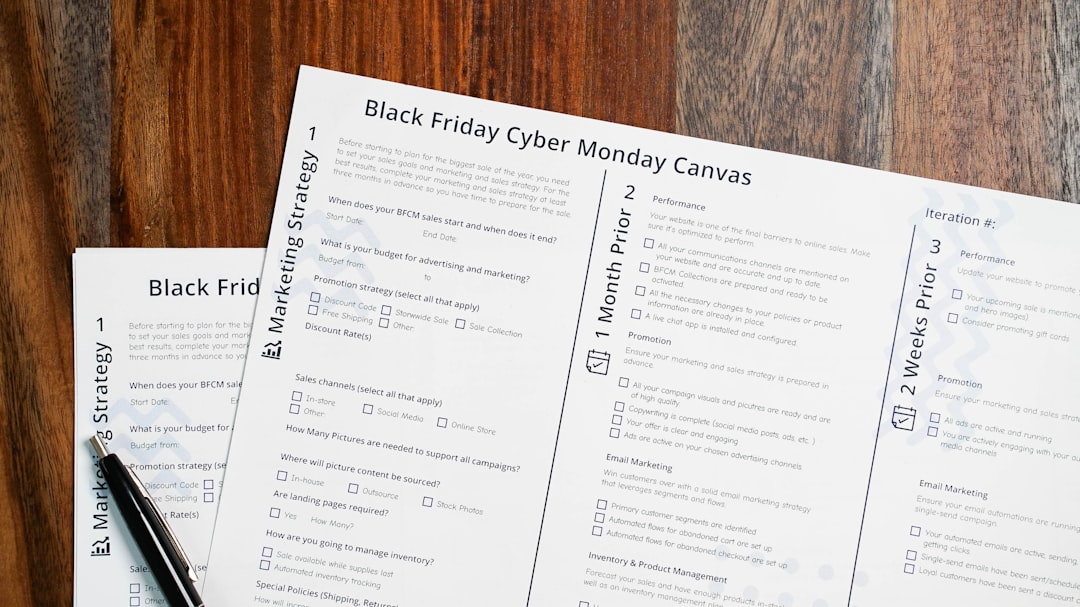 Black Friday Cyber Monday Canvas
1
Marketing Strategy
Before starting to plan for the biggest sale of the year, you need
to set your sales goals and marketing and sales strategy. For the
best results, complete your marketing and sales strategy at least
three months in advance so you have time to prepare for the sale.
When does your BFCM sales start and when does it end?
Start Date:
End Date:
What is your budget for advertising and marketing?
Budget from:
to
Promotion strategy (select all that apply)
Discount Code
Storwwide Sale
Sale Collection
Free Shipping
Other:
Discount Rate(s)
Sales channels (select all that apply)
In-store
Social Media
Online Store
Other:
How Many Pictures are needed to support all campaigns?
Where will picture content be sourced?
In-house
Outsource
Stock Photos
Are landing pages required?
Yes
How Many?
How are you going to manage inventory?
Sale available while supplies last
Automated inventory tracking
Special Policies (Shipping, Returns
How will
2
1 Month Prior
Performance
Your website is one of the final barriers to online sales. Make
sure it's optimized to perform.
All your communications channels are mentioned on
your website and are accurate and up to date.
BFCM Collections are prepared and ready to be
activated.
All the necessary changes to your policies or product
information are already in place.
A live chat app is installed and configured.
Promotion
Ensure your marketing and sales strategy is prepared in
advance.
All your campaign visuals and picutres are ready and are
of high quality.
Copywriting is complete (social media posts, ads, etc. )
Your offer is clear and engaging
Ads are active on your chosen advertising channels.
Email Marketing
Win customers over with a solid email marketing strategy
that leverages segments and flows
Primary customer segments are identified
Automated flows for abandoned cart are set up
Automated flows for abandoned checkout are set up
Inventory & Product Management
Forecast your sales and have enough products in-st
well as an inventory management plan
Iteration #:
3
2 Weeks Prior
Performance
Update your website to promote
Your upcoming sale is mention
and hero images)
Consider promoting gift cards
Promotion
Ensure your marketing and sales strat
All ads are active and running
You are actively engaging with your
media channels
Email Marketing
Ensure your email automations are running
single-send campaign.
Your automated emails are active, sending,
getting clicks.
Single-send emails have been sent/schedule
Loyal customers have been sent a discount
Black Frid
1
Marke
g Strategy
Before starting to plan for the bi
to set your sales goals and marke
best results, complete your mar
three months in advance so yo
When does your BFCM sale
Start Date:
E
What is your budget for
Budget from:
Promotion strategy (se
Discount Code
Free Shipping
t Rate(s)
Sales
(se
In-
Othe